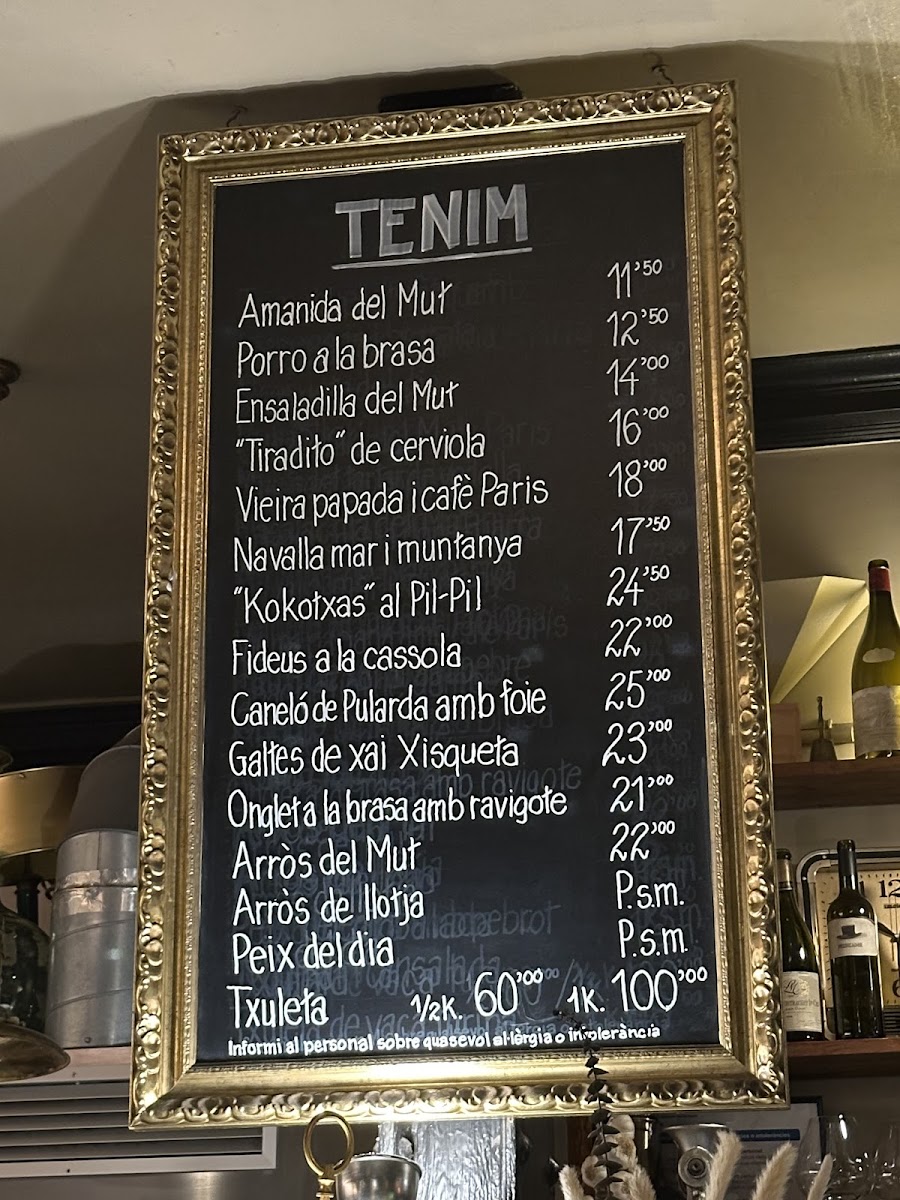 TENIM
Amanida del Mut 11'50
Porro a la brasa 12'50
Ensaladilla del Mut 14'00
"Tiradito" de cerviola 16'00
Vieira papada i cafè Paris 18'00
Navalla mar i muntanya 17'50
"Kokotxas" al Pil-Pil 24'50
Fideus a la cassola 22'00
Caneló de Pularda amb foie 25'00
Galtes de xai Xisqueta 23'00
Onglet a la brasa amb ravigote 21'00
Arròs del Mut 22'00
Arròs de llotja P.s.m.
Peix del dia P.s.m.
Txuleta 1/2K. 60'00 / 1K. 100'00
Informi al personal sobre quasevol al·lèrgia o intolerància